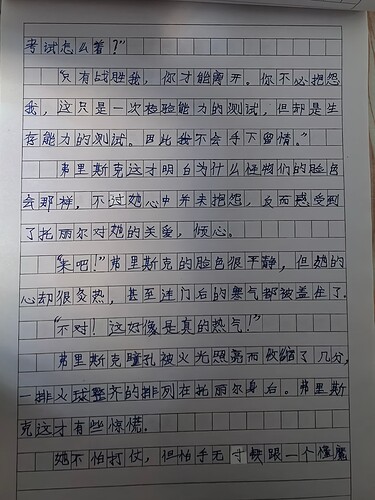 考试怎么着？”
“只有战胜我，你才能离开。你不必抱怨
我，这只是一次检验能力的测试，但却是生
存能力的测试。因此我不会手下留情。”
弗里斯克这才明白为什么怪物们的脸色
会那样，不过她心中并未抱怨，反而感受到
了托丽尔对她的关爱，倾心。
“来吧！”弗里斯克的脸色很平静，但她的
心却很炙热，甚至连门后的寒气都被盖住了.
“不对！这好像是真的热气！”
弗里斯克瞳孔被火光照亮而收缩了几分，
一排火球整齐的排列在托丽尔身后。弗里斯
克这才有些惊慌.
她不怕打仗，但怕手无寸铁跟一个懂魔